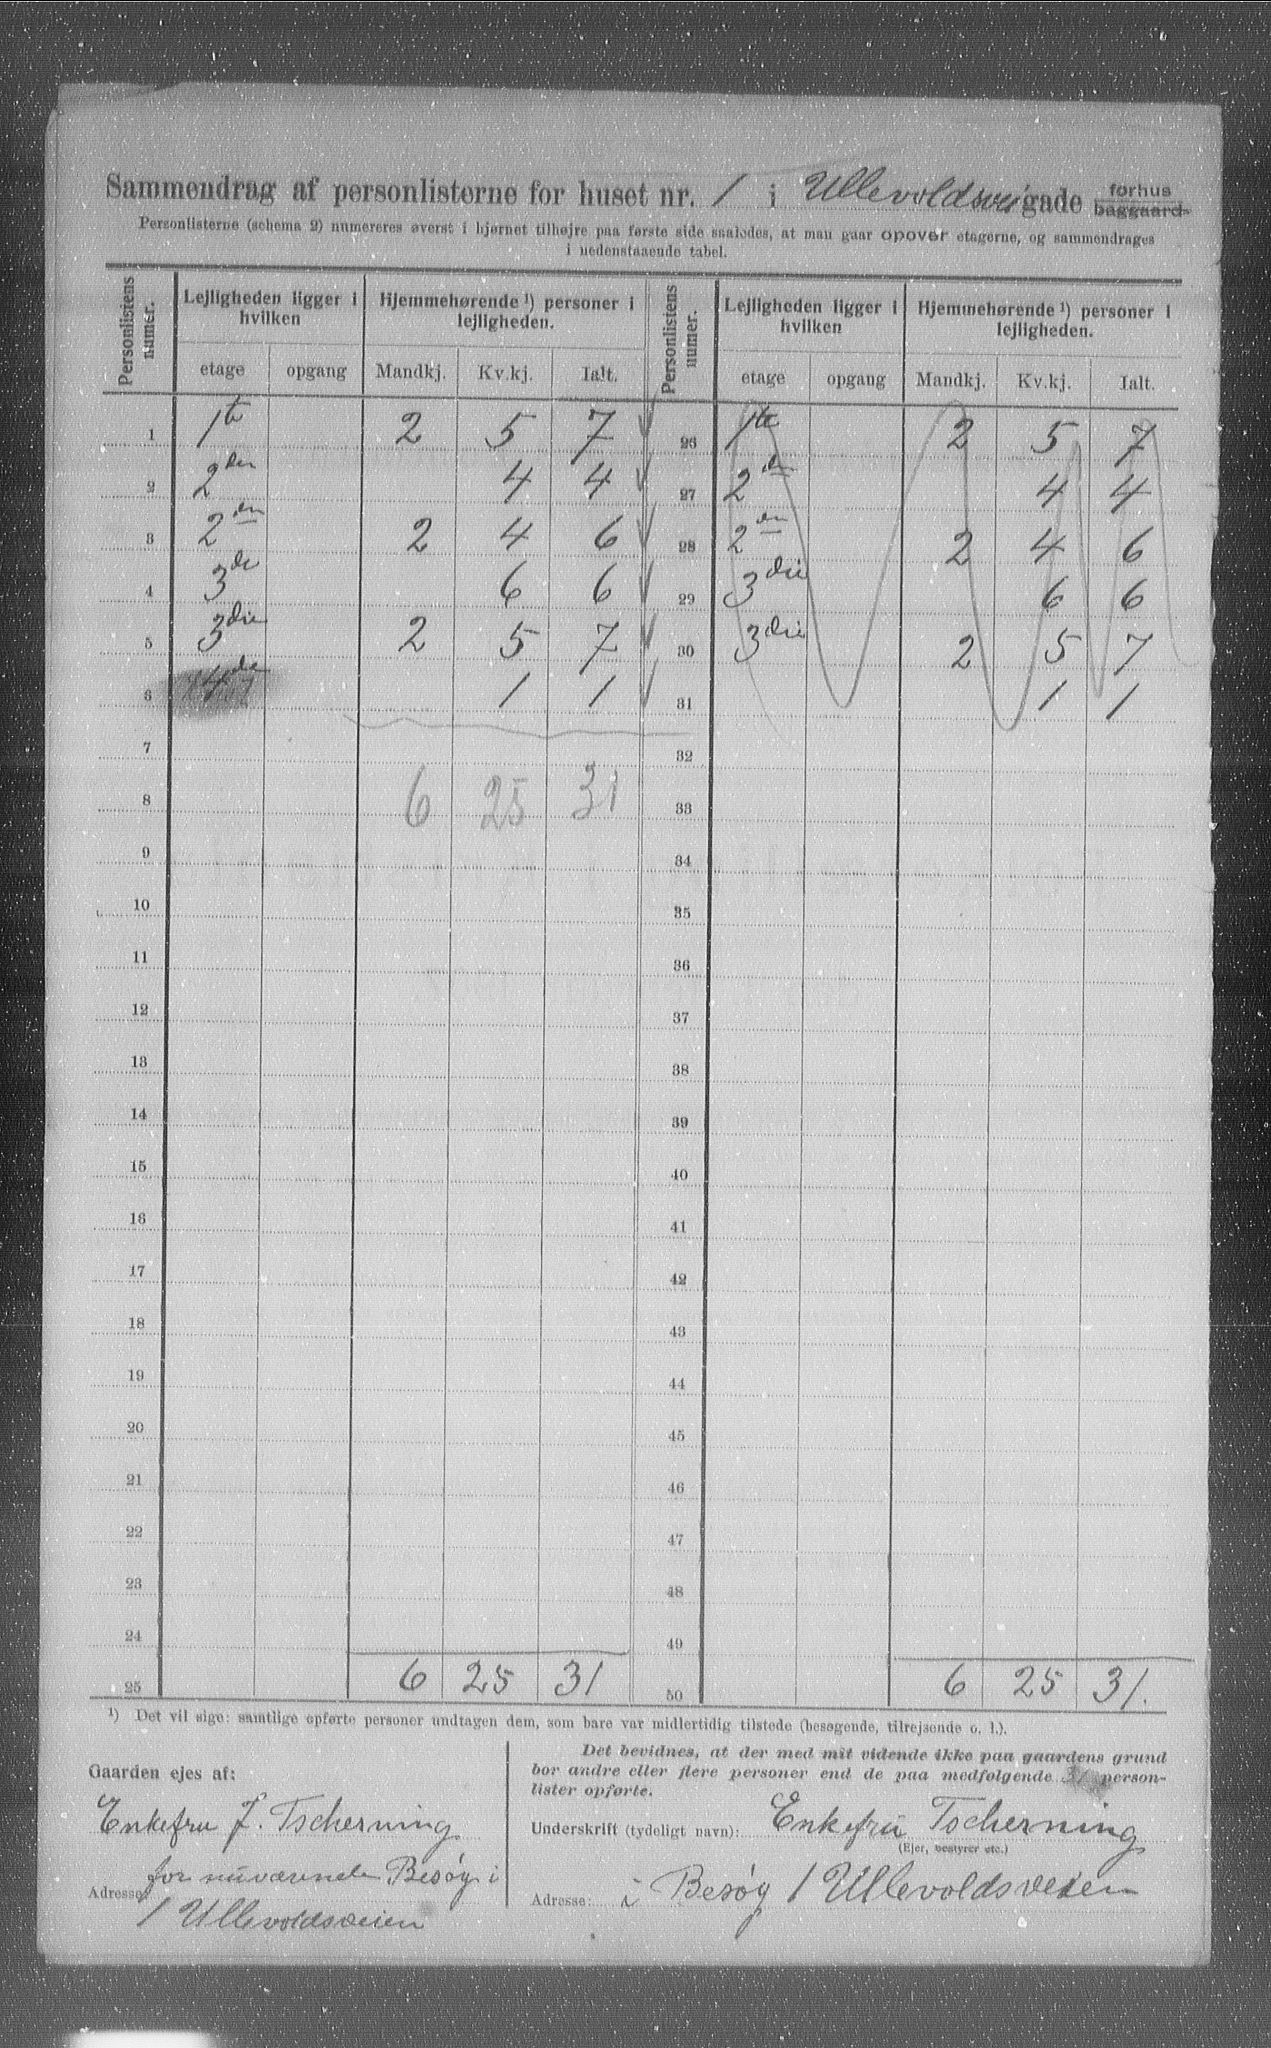 Sammendrag af personlisterne for huset nr. 1 i Ullevoldsveigade forhus baggaard
Personlisterne (schema 2) numereres øverst i hjørnet tilhøjre paa første side saaledes, at man gaar opover etagerne, og sammendrages
i nedenstaaende tabel.
Personlistens numer. Lejligheden ligger i hvilken Hjemmehørende ¹) personer i lejligheden. Personlistens numer. Lejligheden ligger i hvilken Hjemmehørende ¹) personer i lejligheden.
etage opgang Mandkj. Kv.kj. Ialt. etage opgang Mandkj. Kv.kj. Ialt.
1 1te 2 5 7 26 1te 2 5 7
2 2den 4 4 27 2den 4 4
3 2den 2 4 6 28 2den 2 4 6
4 3de 6 6 29 3die 6 6
5 3die 2 5 7 30 3die 2 5 7
6 4de 1 1 31 1 1
7 32
8 6 25 31 33
9 34
10 35
11 36
12 37
13 38
14 39
15 40
16 41
17 42
18 43
19 44
20 45
21 46
22 47
23 48
24 49
25 6 25 31 50 6 25 31.
¹) Det vil sige: samtlige opførte personer undtagen dem, som bare var midlertidig tilstede (besøgende, tilrejsende o. l.).
Gaarden ejes af:
Enkefru J. Tscherning
for nuværende Besøg i
Adresse:
1 Ullevoldsveien
Det bevidnes, at der med mit vidende ikke paa gaardens grund
bor andre eller flere personer end de paa medfølgende 31 person-
lister opførte.
Underskrift (tydeligt navn): Enkefru Tscherning
(Ejer, bestyrer etc.)
Adresse: i Besøg 1 Ullevoldsveien